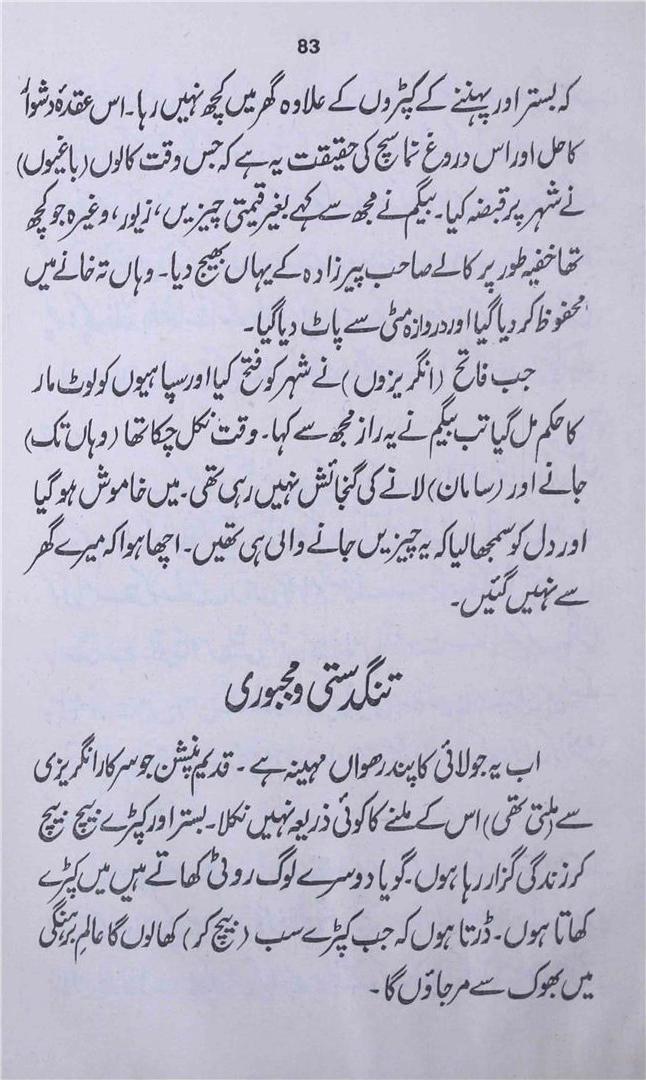 83
کہ بستر اور پہننے کے کپڑوں کے علاوہ گھر میں کچھ نہیں رہا۔ اس عقدۂ دشوار
کا حل اور اس دروغ نما سچ کی حقیقت یہ ہے کہ جس وقت کالوں (باغیوں)
نے شہر پر قبضہ کیا۔ بیگم نے مجھ سے کہے بغیر قیمتی چیزیں، زیور، وغیرہ جو کچھ
تھا خفیہ طور پر کالے صاحب پیرزادہ کے یہاں بھیج دیا۔ وہاں تہ خانے میں
محفوظ کر دیا گیا اور دروازہ مٹی سے پاٹ دیا گیا۔
جب فاتح (انگریزوں) نے شہر کو فتح کیا اور سپاہیوں کو لوٹ مار
کا حکم مل گیا تب بیگم نے یہ راز مجھ سے کہا۔ وقت نکل چکا تھا (وہاں تک)
جانے اور (سامان) لانے کی گنجائش نہیں رہی تھی۔ میں خاموش ہو گیا
اور دل کو سمجھا لیا کہ یہ چیزیں جانے والی ہی تھیں۔ اچھا ہوا کہ میرے گھر
سے نہیں گئیں۔
تنگدستی و مجبوری
اب یہ جولائی کا پندرھواں مہینہ ہے۔ قدیم پنشن جو سرکار انگریزی
سے (ملتی تھی) اس کے ملنے کا کوئی ذریعہ نہیں نکلا۔ بستر اور کپڑے بیچ بیچ
کر زندگی گزار رہا ہوں۔ گویا دوسرے لوگ روٹی کھاتے ہیں میں کپڑے
کھاتا ہوں۔ ڈرتا ہوں کہ جب کپڑے سب (بیچ کر) کھالوں گا عالم برہنگی
میں بھوک سے مر جاؤں گا۔